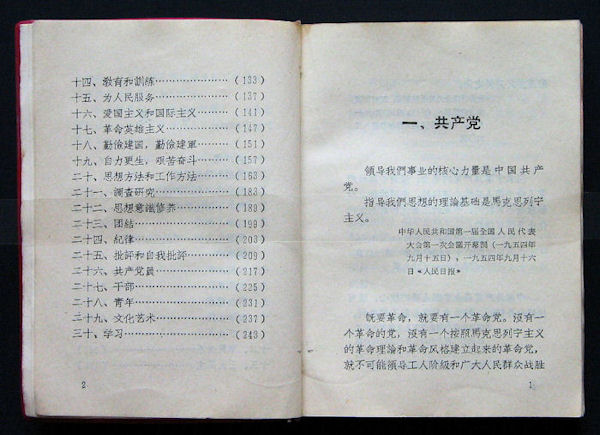 十四、教育和訓練…………………（133）
十五、为人民服务…………………（137）
十六、爱国主义和国际主义………（141）
十七、革命英雄主义………………（147）
十八、勤儉建国，勤儉建軍………（151）
十九、自力更生，艰苦奋斗………（157）
二十、思想方法和工作方法………（163）
二十一、調查研究…………………（183）
二十二、思想意識修养……………（189）
二十三、团結………………………（199）
二十四、紀律………………………（203）
二十五、批評和自我批評…………（209）
二十六、共产党員…………………（217）
二十七、干部………………………（225）
二十八、青年………………………（231）
二十九、文化艺术…………………（237）
三十、学习…………………………（243）
2
一、共产党
領导我們事业的核心力量是中国共产
党。
指导我們思想的理論基础是馬克思列宁
主义。
中华人民共和国第一届全国人民代表
大会第一次会議开幕詞（一九五四年
九月十五日），一九五四年九月十六
日《人民日报》
既要革命，就要有一个革命党。沒有一
个革命的党，沒有一个按照馬克思列宁主义
的革命理論和革命风格建立起来的革命党，
就不可能領导工人阶級和广大人民群众战胜
1